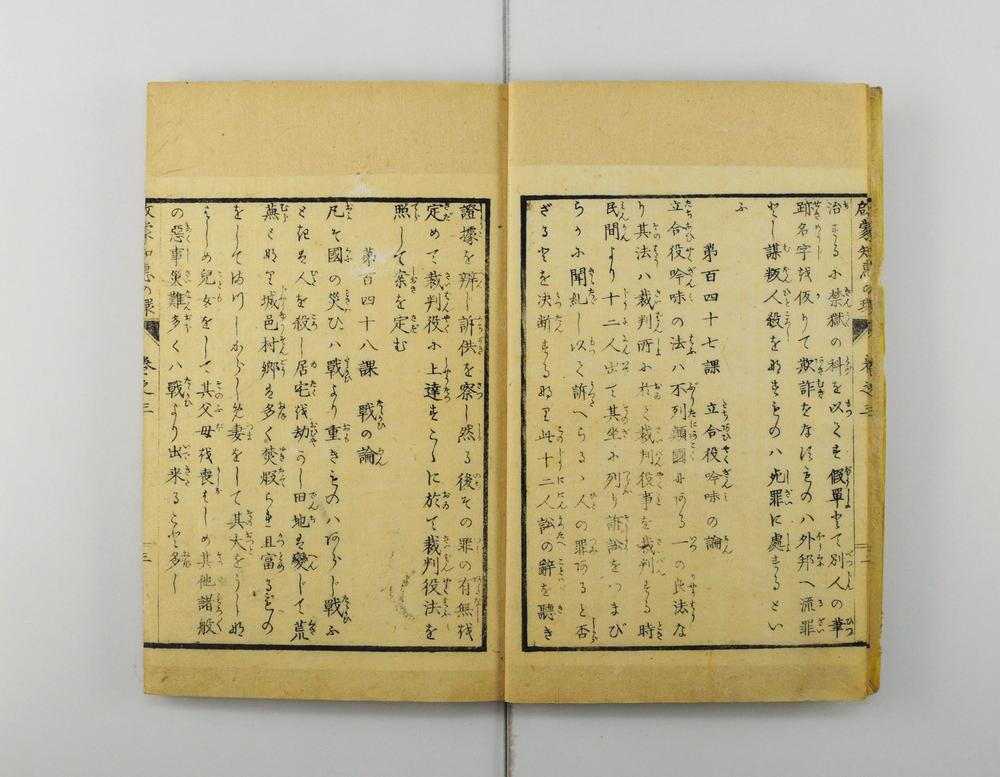 啟蒙知惠の環 巻之三
治まるふ禁獄の科を以てを假單をて別人の筆
跡名字を仮りて欺詐をなすものハ外邦へ流罪
し謀叛人殺をあすものハ死罪に處するとい
ふ
第百四十七課 立合役吟味の論
立合役吟味の法ハ不列顛國にある一の良法な
り其法ハ裁判所に於て裁判役事を裁判する時
民間より十二人出て其坐に列り訴訟をつまび
らかに聞糺し以て訴へらるゝ人の罪あると否
ざるとを決断するなり此十二人訟の辭を聽き
證據を辨し訴供を察し然る後その罪の有無を
定めて裁判役に上達すこゝに於て裁判役法を
照して案を定む
第百四十八課 戰の論
凡そ國の災ひハ戰より重きものハあらじ戰ふ
ときは人を殺し居宅を劫かし田地を變じて荒
蕪となし城邑村鄉を多く焚燬らせ且富るもの
をして まづしからしめ妻をして其夫をうしな
はしめ兒女をして其父母を喪はしめ其他諸般
の惡事災難多くハ戰より出来ること多し
啟蒙知惠の環 巻之三 三